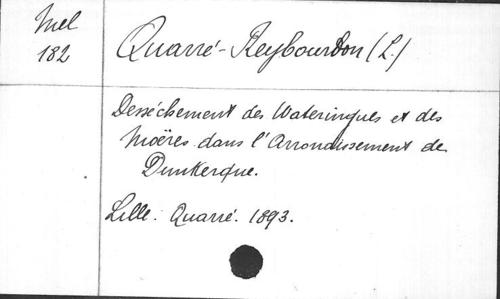 Mel
182
Quarré-Reybourbon (L.)
Desséchement des Wateringues et des
Moëres dans l'Arrondissement de
Dunkerque.
Lille. Quarré. 1893.